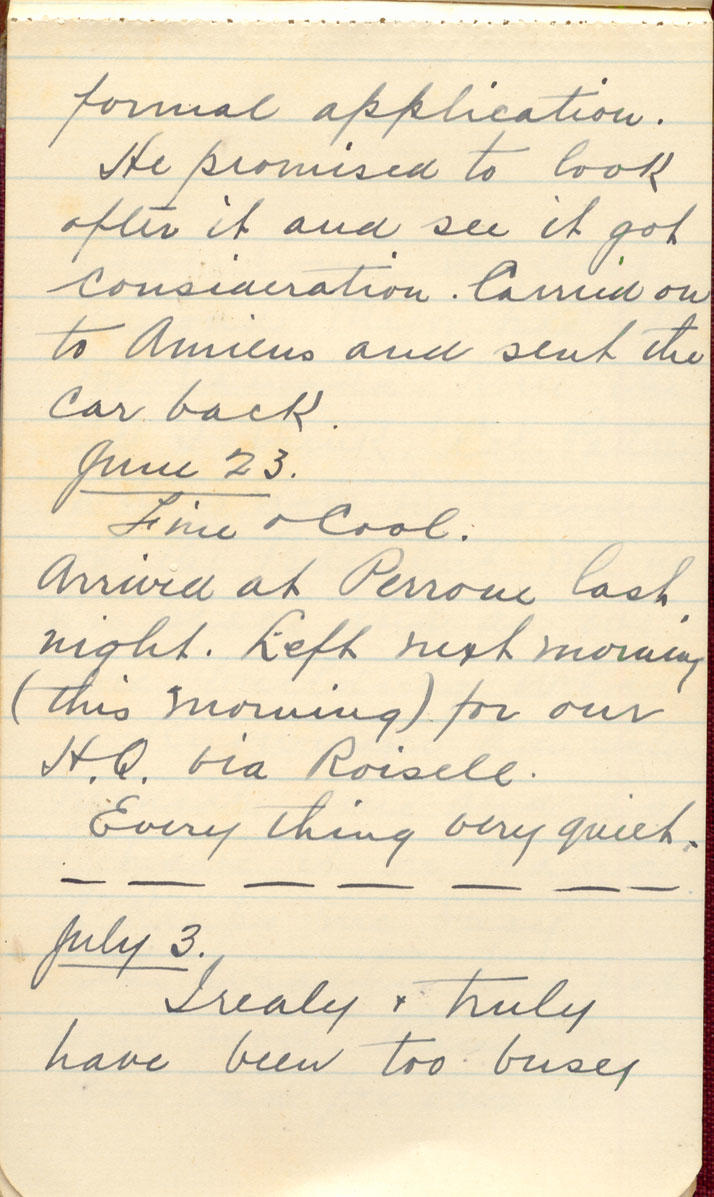 formal application.
He promised to look
after it and see it got
consideration. Carried on
to Amiens and sent the
car back.
June 23.
Fine & Cool.
Arrived at Perrone last
night. Left next morning
(this morning) for our
H.Q. via Roisell.
Every thing very quiet.
July 3.
I realy & truly
have been too busey